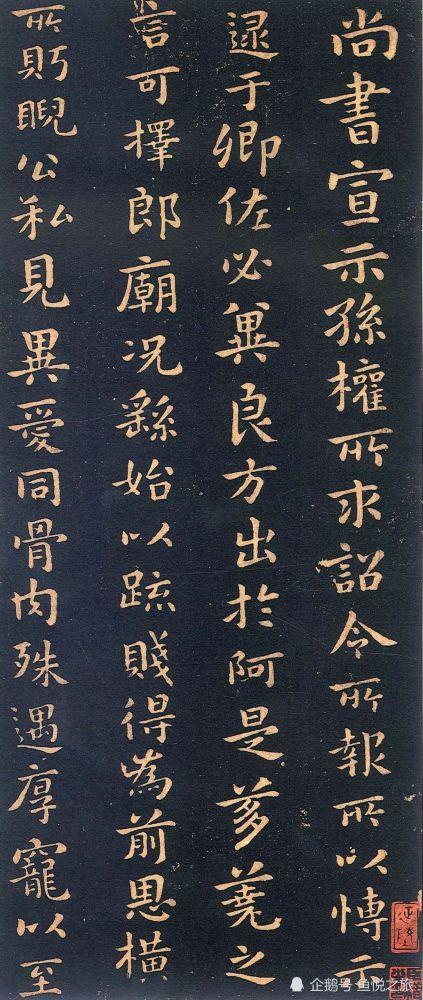 尚書宣示孫權所求詔令所報所以博示
逮于卿佐必兾良方出於阿是芻蕘之
言可擇郎廟况繇始以疏賤得為前恩橫
所䀼睨公私見異愛同骨肉殊遇厚寵以至
企鹅号 鱼悦之旅